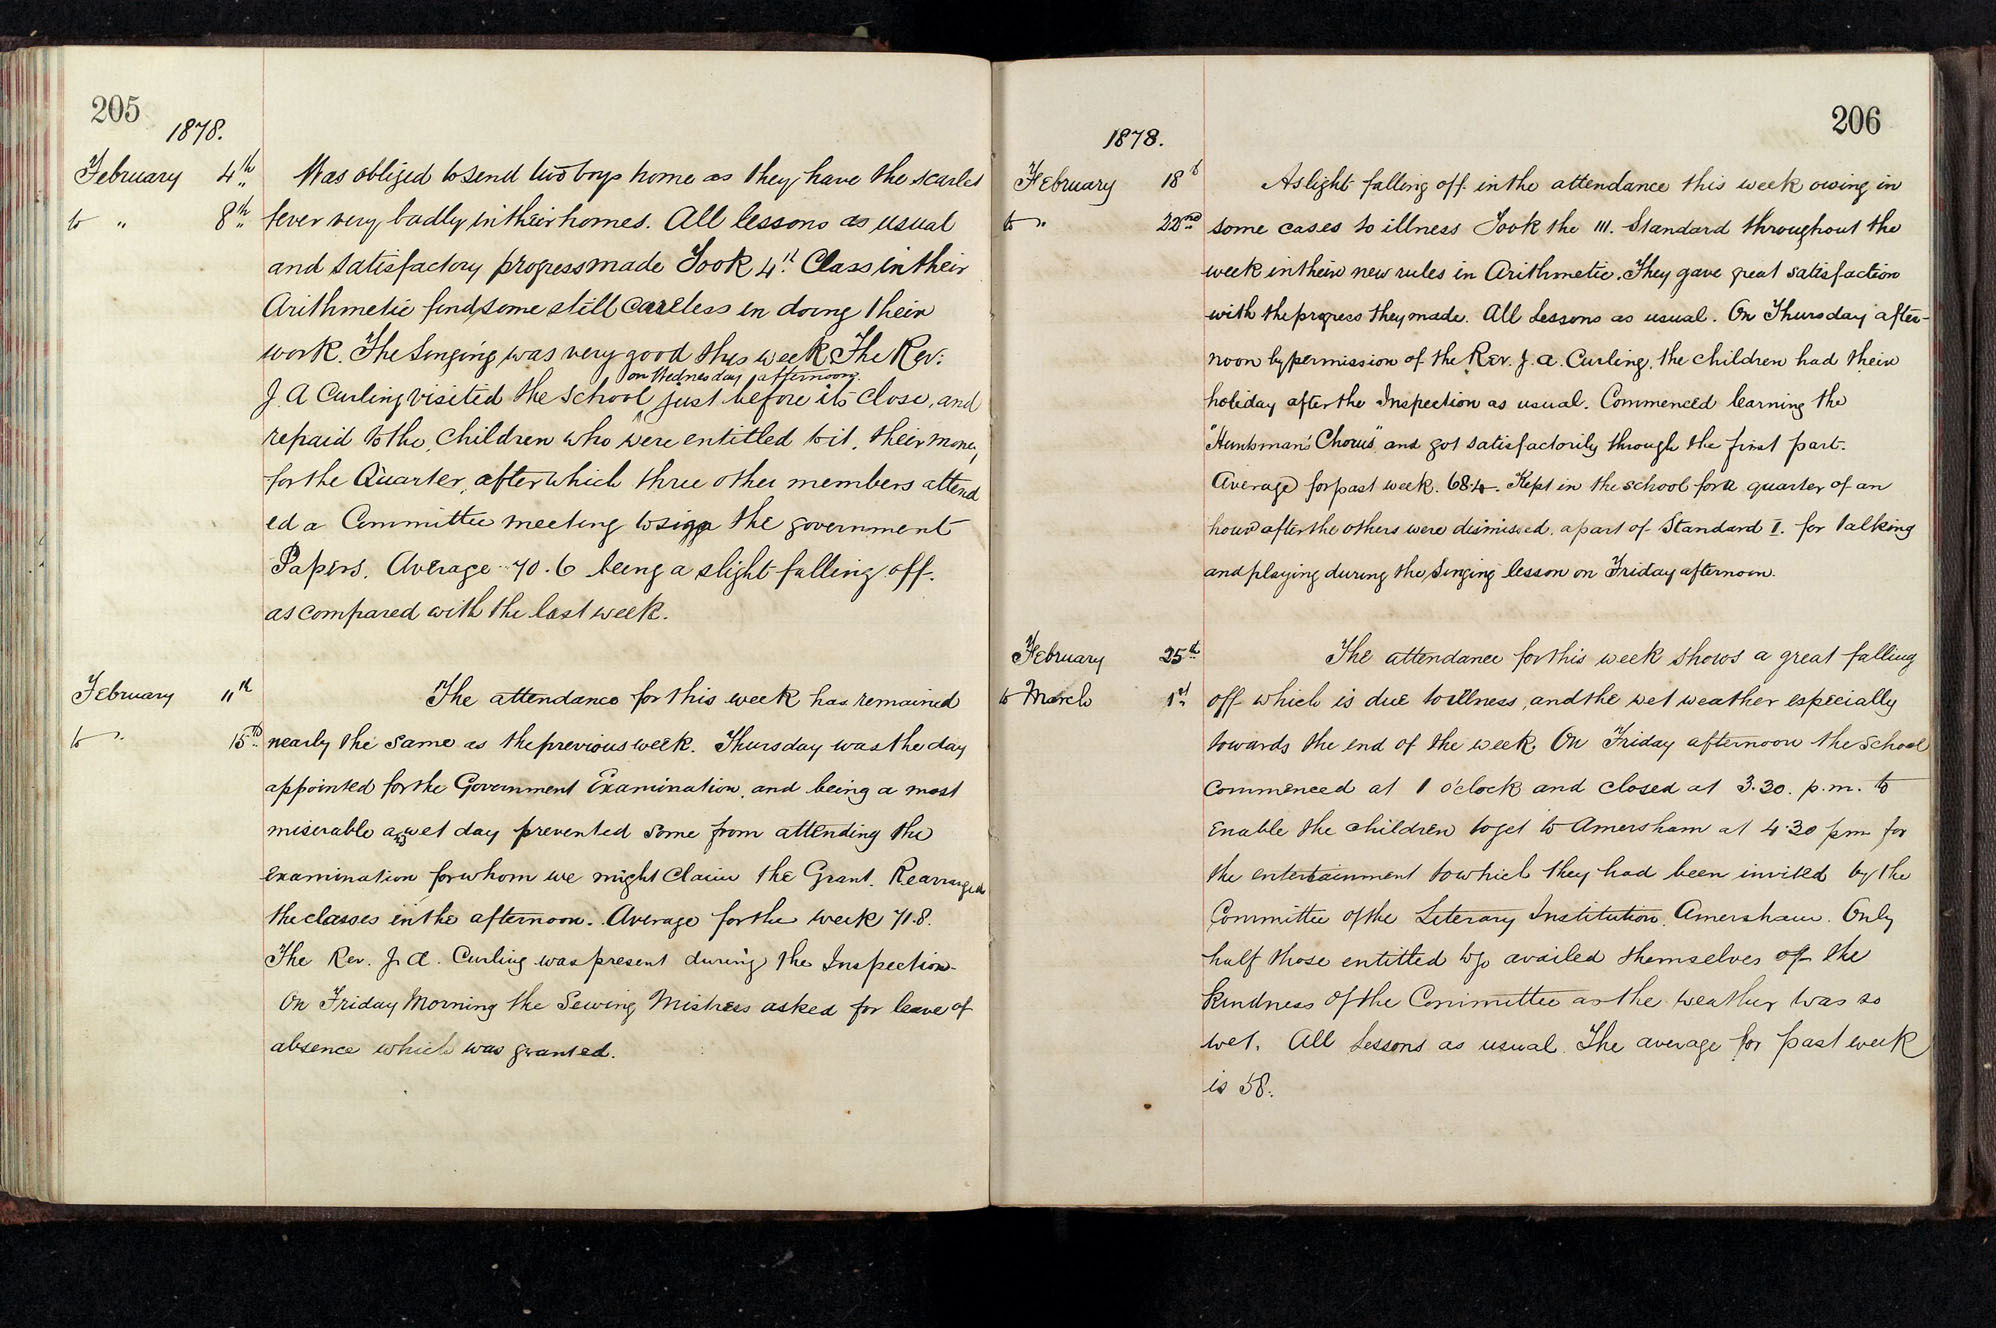 205
1878.
February 4th Was obliged to send two boys home as they have the scarlet
to " 8th fever very badly in their homes. All lessons as usual
and satisfactory progress made Took 4th Class in their
Arithmetic find some still careless in doing their
work. The Singing was very good this week The Rev:
on Wednesday afternoon.
J. A Curling visited the school just before its close, and
repaid to the children who were entitled to it, their money
for the Quarter, after which three other members attend
ed a Committee meeting to sign the government
Papers. Average 70.6 being a slight falling off.
as compared with the last week.
February 11th The attendance for this week has remained
to " 15th nearly the same as the previous week. Thursday was the day
appointed for the Government Examination, and being a most
miserable and wet day prevented some from attending the
examination for whom we might claim the Grant. Rearranged
the classes in the afternoon. Average for the week 71.8.
The Rev. J. A. Curling was present during the Inspection.
On Friday Morning the Sewing Mistress asked for leave of
absence which was granted.
206
1878.
February 18th A slight falling off in the attendance this week owing in
to " 22nd some cases to illness Took the III. Standard throughout the
week in their new rules in Arithmetic. They gave great satisfaction
with the progress they made. All Lessons as usual. On Thursday after-
noon by permission of the Rev. J. A. Curling, the children had their
holiday after the Inspection as usual. Commenced learning the
"Huntsman's Chorus" and got satisfactorily through the first part.
Average for past week. 68.4. Kept in the school for a quarter of an
hour after the others were dismissed, a part of Standard I. for talking
and playing during the Singing lesson on Friday afternoon.
February 25th The attendance for this week shows a great falling
to March 1st off which is due to illness, and the wet weather especially
towards the end of the week. On Friday afternoon the school
commenced at 1 o'clock and closed at 3.30. p.m. to
enable the children to get to Amersham at 4.30 pm for
the entertainment to which they had been invited by the
Committee of the Literary Institution, Amersham. Only
half those entitled to go availed themselves of the
kindness of the Committee as the weather was so
wet. All Lessons as usual. The average for past week
is 58.